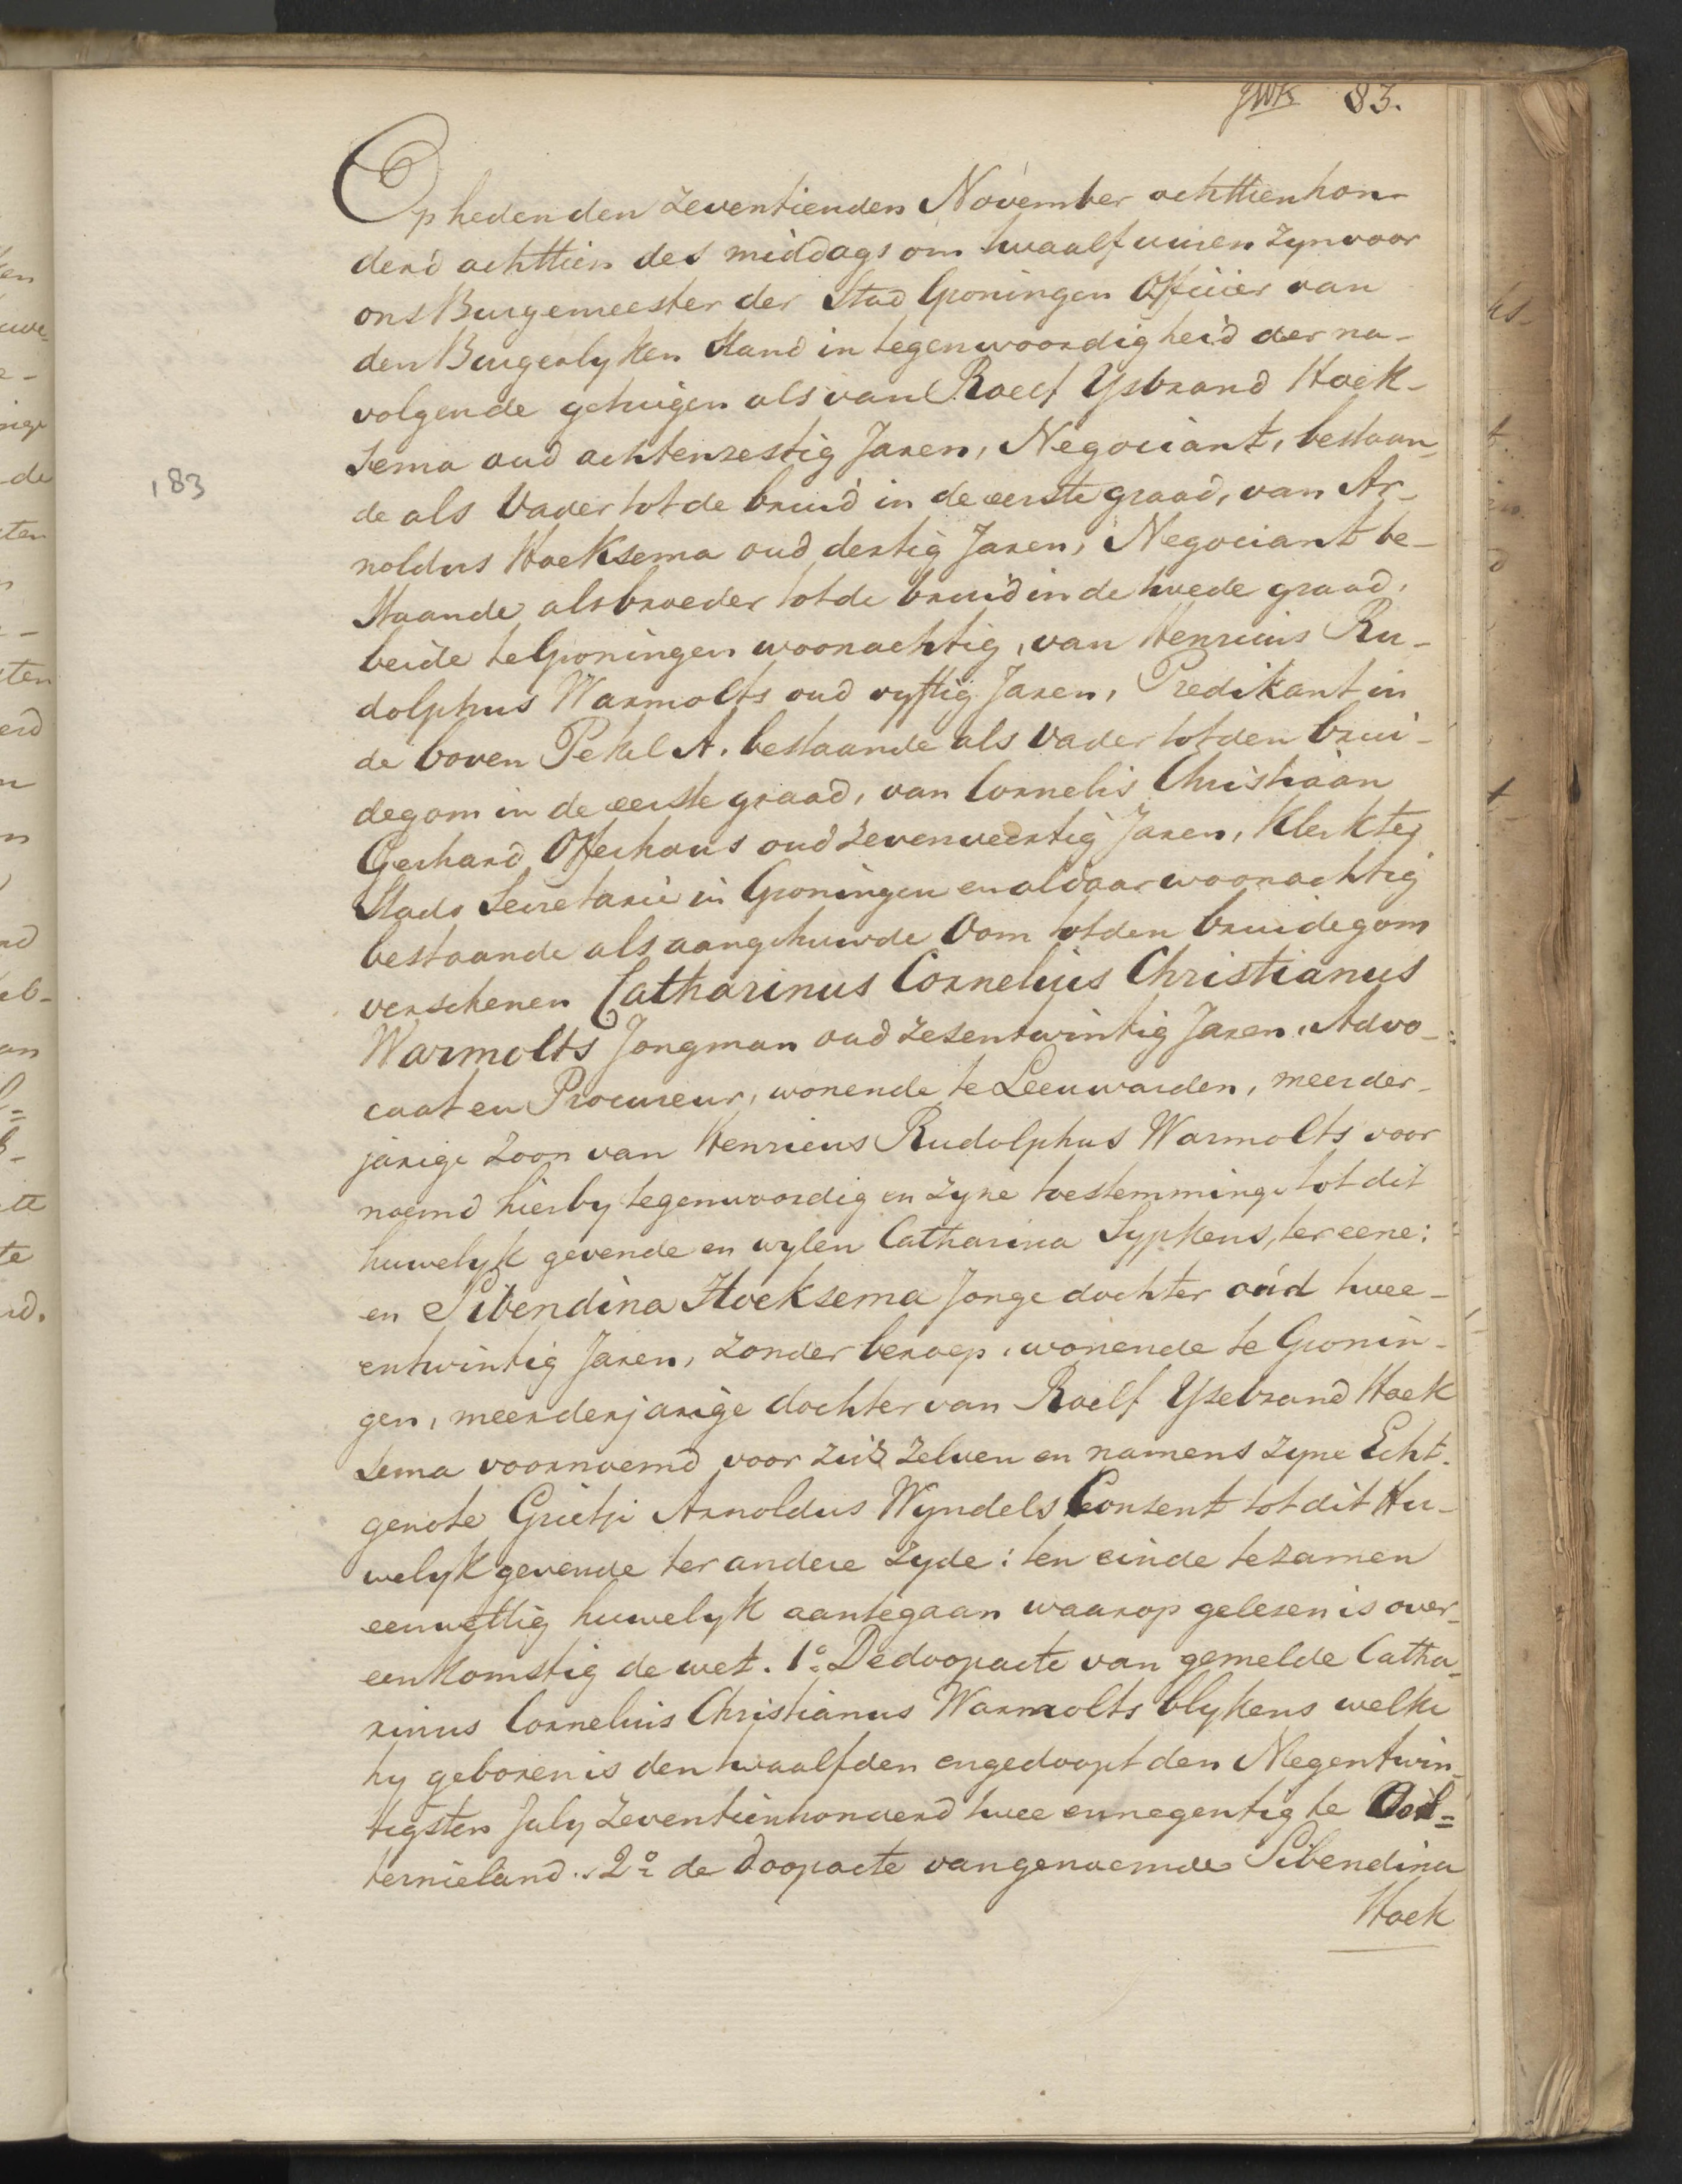 JWK 83.
Op heden den zeventienden November achttienhon-
derd achttien des middags om twaalf uuren zyn voor
ons Burgemeester der Stad Groningen Officier van
den Burgerlyken Stand in tegenwoordigheid der na-
volgende getuigen als van Roelf Ysbrand Hoek-
sema oud achtenzestig Jaren, Negociant, bestaan-
183
de als Vader tot de bruid in de eerste graad, van Ar-
noldus Hoeksema oud dertig Jaren, Negociant be-
staande als broeder tot de bruid in de twede graad,
beide te Groningen woonachtig, van Henricus Ru-
dolphus Warmolts oud vyftig Jaren, Predikant in
de boven Pekel A. bestaande als Vader tot den brui-
degom in de eerste graad, van Cornelis Christiaan
Gerhard Offerhaus oud zevenveertig Jaren, Klerk ter
Stads Secretarie in Groningen en aldaar woonachtig
bestaande als aangehuwde Oom tot den bruidegom
verschenen Catharinus Cornelius Christianus
Warmolts Jongman oud zesentwintig Jaren, Advo-
caat en Procureur, wonende te Leeuwarden, meerder-
jarige Zoon van Henricus Rudolphus Warmolts voor
noemd hierby tegenwoordig en zyne toestemming tot dit
huwelyk gevende en wylen Catharina Sypkens, ter eene:
en Sibendina Hoeksema Jonge dochter oud twee-
entwintig Jaren, zonder beroep, wonende te Gronin-
gen, meerderjarige dochter van Roelf Ysebrand Hoek
sema voornoemd voor zich zelven en namens zyne Echt-
genote Grietje Arnoldus Wyndels Consent tot dit Hu-
welyk gevende ter andere zyde: ten einde tezamen
een wettig huwelyk aantegaan waarop gelezen is over-
eenkomstig de wet. 1o. De doopacte van gemelde Catha-
rinus Cornelius Christianus Warmolts blykens welke
hy geboren is den twaalfden en gedoopt den Negentwin-
tigsten July zeventienhonderd twee en negentig te Oos-
ternieland. 2o. de doopacte van genoemde Sibendina
Hoek